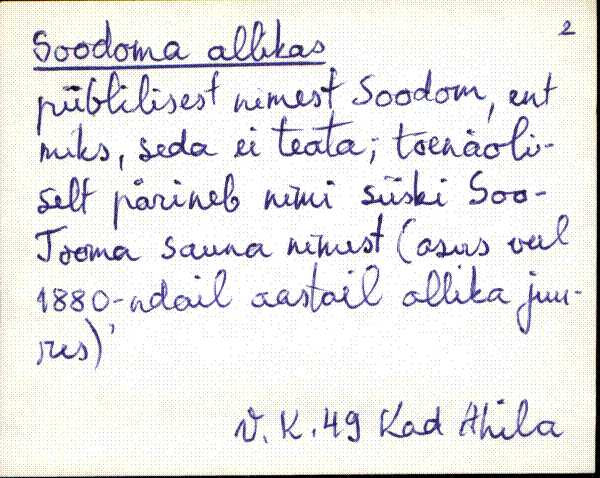 2
Soodoma allikas
piiblilisest nimest Soodom, ent
miks, seda ei teata; tõenäoli-
selt pärineb nimi siiski Soo-
Tooma sauna nimest (asus veel
1880-ndail aastail allika juu-
res)'
V.K.49 Kad Ahila